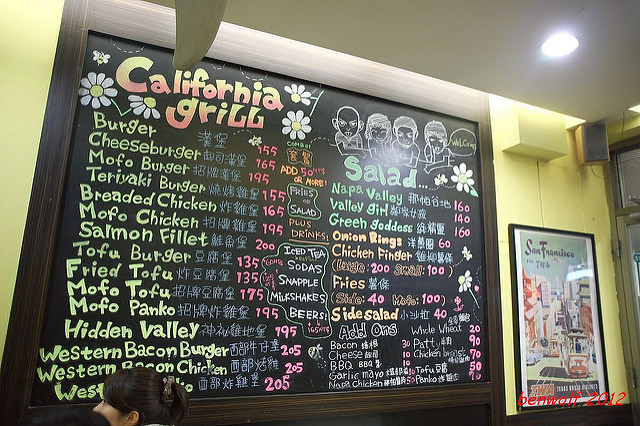 California
griLL
Burger 漢堡 155
Cheeseburger 起司漢堡 165
Mofo Burger 招牌漢堡 195
Teriyaki Burger 燒烤雞堡 155
Breaded Chicken 炸雞堡 165
Mofo Chicken 招牌雞堡 195
Salmon Fillet 鮭魚堡 200
Tofu Burger 豆腐堡 135
Fried Tofu 炸豆腐堡 135
Mofo Tofu 招牌豆腐堡 175
Mofo Panko 招牌炸雞堡 195
Hidden Valley 神秘雞地堡 195
Western Bacon Burger 西部牛仔堡 205
Western Bacon Chicken 西部烤雞 205
West 西部炸雞堡 205
COMBO!
套餐
ADD 50
OR MORE!
FRIES
OR
SALAD
PLUS
DRINKS:
ICED TEA
SODAS
SNAPPLE
MILKSHAKES
BEERS
Welcome
Salad...
Napa Valley 那帕谷地 160
Valley girl 140
Green goddess 綠精靈 160
Onion Rings 洋蔥圈 60
Chicken Finger 雞柳薯條
(Large: 200 Small: 100)
Fries 薯條
(Side: 40 Mofo: 100)
Side salad 小沙拉 40
Add Ons
Whole Wheat 20
Bacon 培根 30
Patty 牛肉 90
Cheese 起司 10
Chicken breast 70
BBQ BBQ醬 10
Tofu 豆腐 50
Garlic mayo 10
Napa Chicken 50
Panko 70
San Francisco
FLY TWA
TWA TRANS WORLD AIRLINES
benwolf 2012